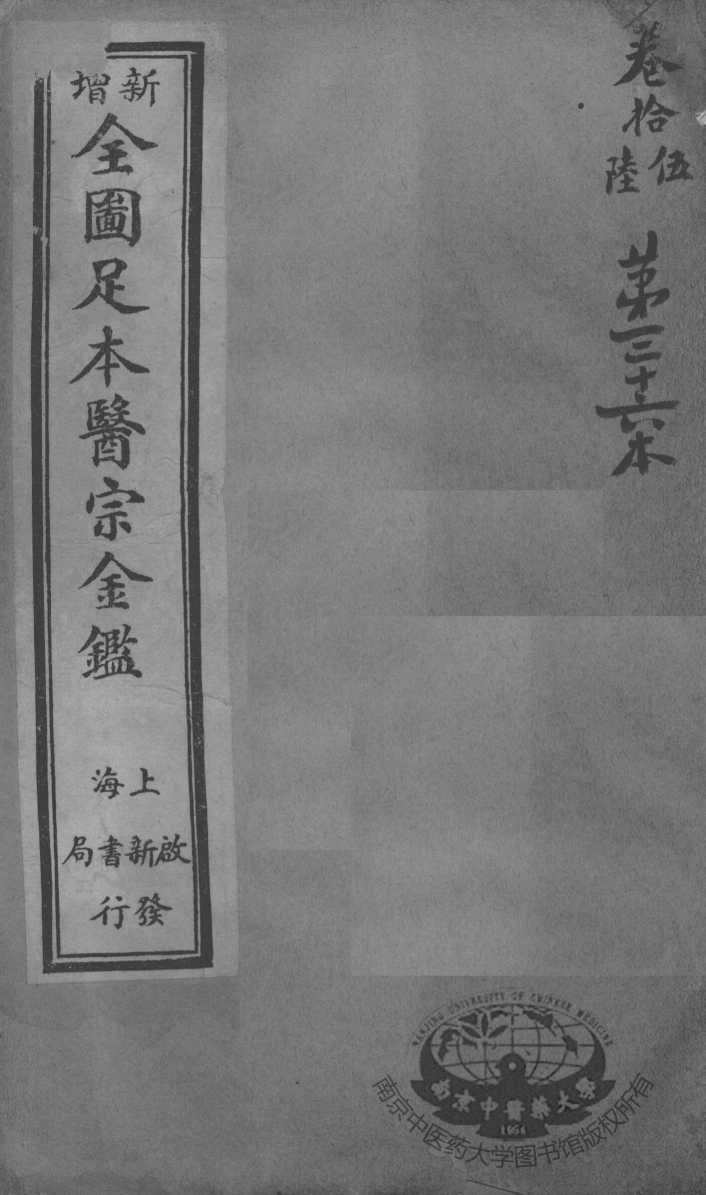 卷拾伍陸
第三十六本
新增
全圖足本醫宗金鑑
上海
啟新書局
發行
NANJING UNIVERSITY OF CHINESE MEDICINE
南京中醫藥大學
1954
南京中医药大学图书馆版权所有